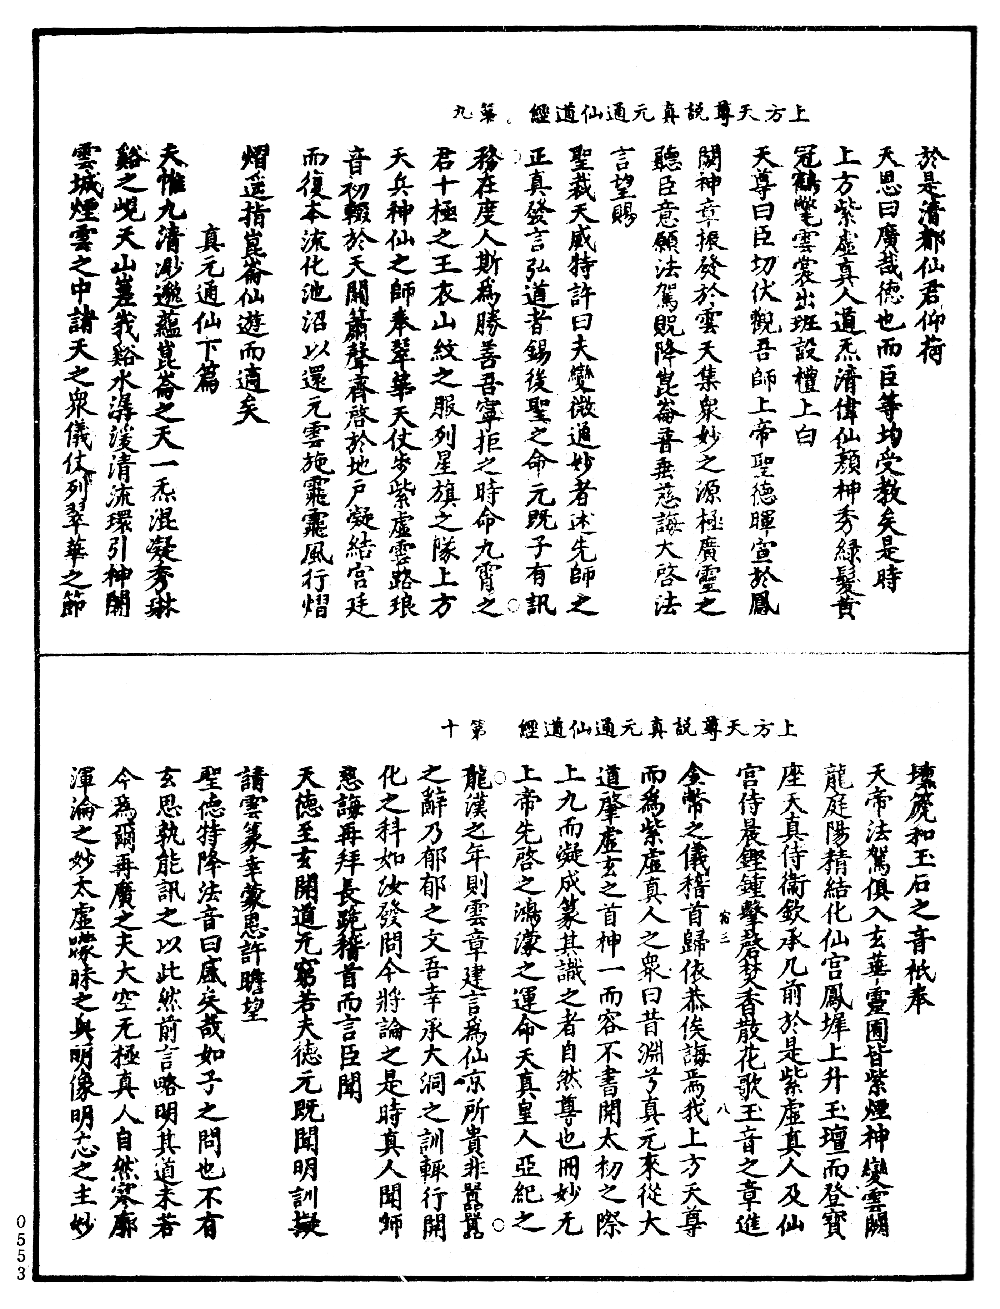 上方天尊說真元通仙道經　第九
於是清都仙君仰荷
天恩曰廣哉德也而臣等均受教矣是時
上方紫虛真人道炁清偉仙顏神秀綠髮黃
冠鶴氅雲裳出班設禮上白
天尊曰臣切伏觀吾師上帝聖德暉宣於鳳
闕神章振發於雲天集眾妙之源極廣靈之
聽臣意願法駕貺降崑崙普垂慈誨大啓法
言望賜
聖裁天威特許曰夫變微通妙者述先師之
正真發言弘道者錫後聖之命元既子有訊
務在度人斯為勝善吾寧拒之時命九霄之
君十極之王衣山紋之服列星旗之隊上方
天兵神仙之師奉翠華天仗步紫虛雲路琅
音初輟於天關簫聲齊啓於地戶凝結宮廷
而復本流化池沼以還元雲施靄靄風行熠
熠遥指崑崙仙遊而適矣
真元通仙下篇
天惟九清渺邈蘊崑崙之天一炁混凝秀琳
谿之峴天山𡾋峩谿水潺湲清流環引神關
雲城煙雲之中諸天之眾儀仗列翠華之節
上方天尊說真元通仙道經　第十
壎篪和玉石之音祇奉
天帝法駕俱入玄華靈圃皆紫煙神變雲闕
龍庭陽精結化仙宮鳳墀上升玉壇而登寶
座天真侍衛欽承几前於是紫虛真人及仙
宮侍晨鏗鍾擊磬焚香散花歌玉音之章進
金幣之儀稽首歸依恭俟誨焉我上方天尊
而為紫虛真人之衆曰昔淵兮真元來從大
道肇虛玄之首神一而容不書開太初之際
上九而凝成篆其識之者自然尊也冊妙无
上帝先啓之鴻濛之運命天真皇人亞紀之
龍漢之年則雲章建言為仙京所貴非囂囂
之辭乃郁郁之文吾幸承大洞之訓輒行開
化之科如汝發問今將論之是時真人聞師
慈誨再拜長跪稽首而言臣聞
天德至玄開道元窮若夫德元既聞明訓擬
請雲篆幸蒙恩許瞻望
聖德特降法音曰盛矣哉如子之問也不有
玄思孰能訊之以此然前言略明其道未若
今為爾再廣之夫大空元極真人自然寥廓
渾淪之妙太虛曚昧之與明像明忘之主妙
八
0553